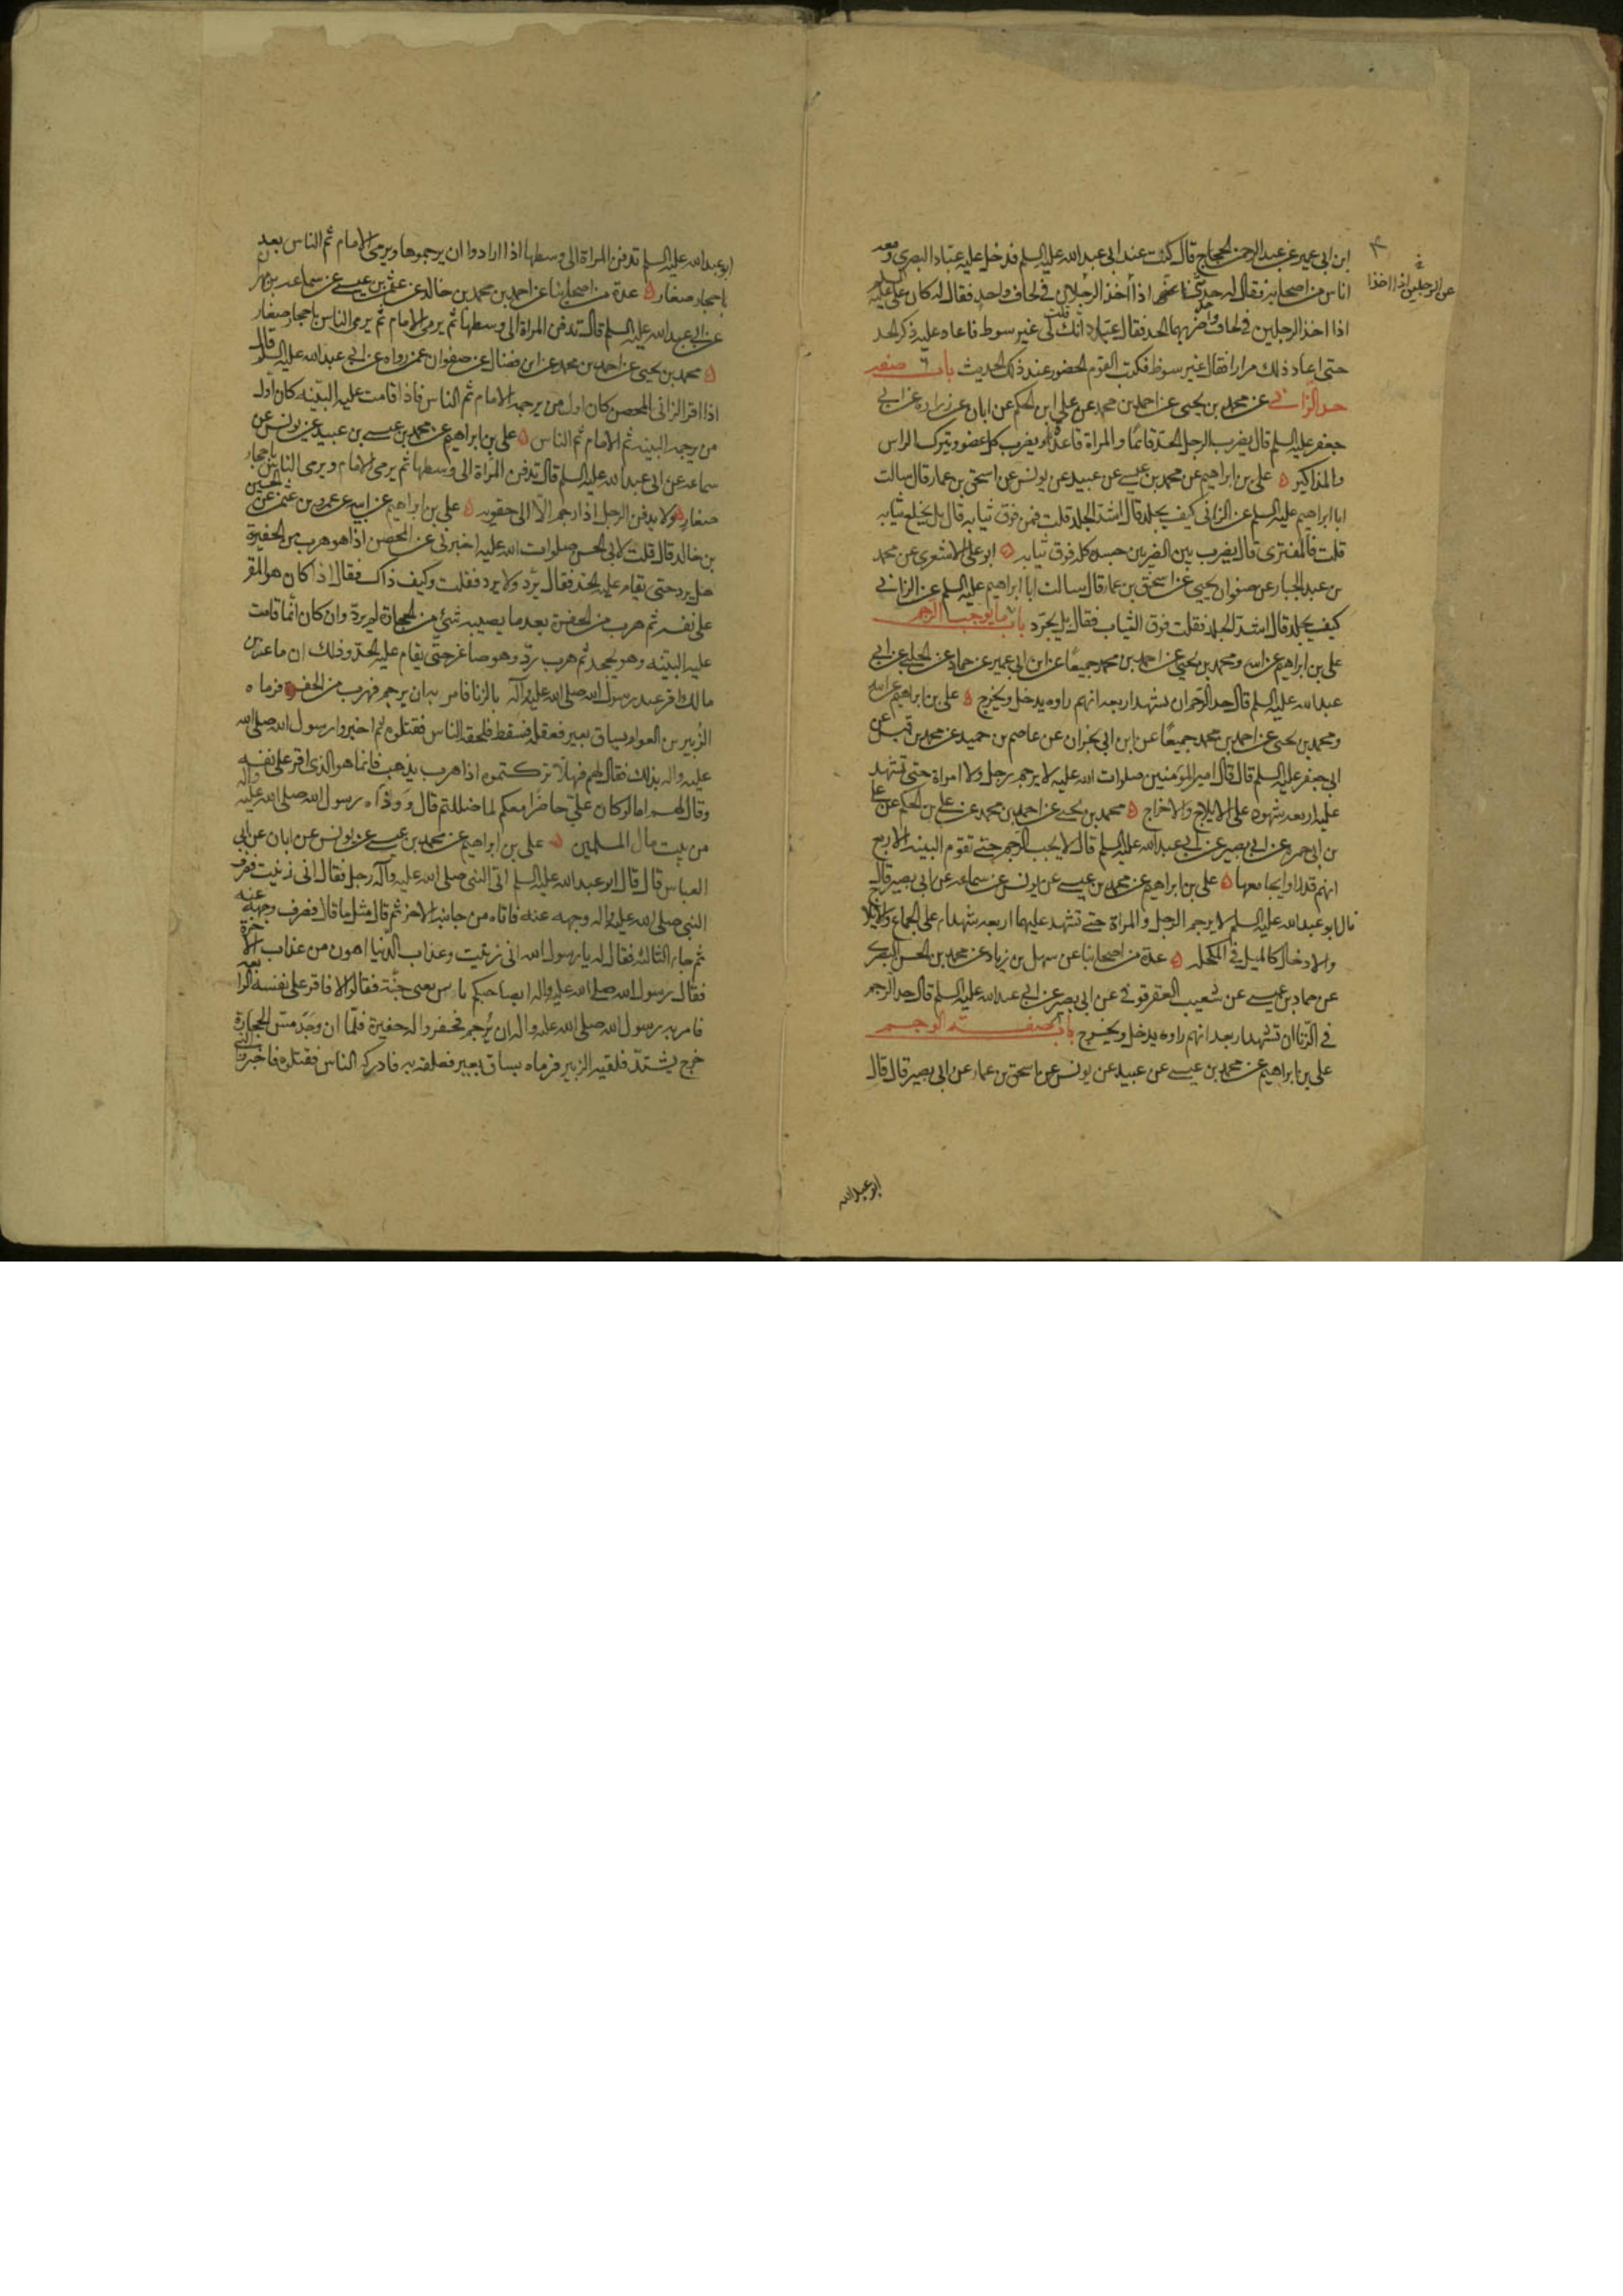 ابن ابي عمير عن عبد الرحمن الحجاج قال كنت عند ابي عبد الله عليه السلم فدخل عليه عباد البصري ومعه
اناس من اصحابه فقال له حدثني اذا أخذ الرجلان في لحاف واحد فقال له كان علي عليه السلم
عن الرجلين اذا اخذا
اذا اخذ الرجلين في لحاف واحد ضربهما الحد فقال عباد انك قلت لي غير سوط فاعاد عليه ذكر الحد
حتى اعاد ذلك مرارا فقال غير سوط فكتب القوم الحضور عند ذلك الحديث باب صفة
حد الزاني عن محمد بن يحيى عن احمد بن محمد عن علي ابن الحكم عن ابان عن زرارة عن ابي
جعفر عليه السلم قال يضرب الرجل الحد قائما والمراة قاعدة ويضرب كل عضو ويترك الراس
والمذاكير علي بن ابراهيم عن محمد بن عيسى عن عبيد عن يونس عن اسحق بن عمار قال سالت
ابا ابراهيم عليه السلم عن الزاني كيف يجلد قال اشد الجلد قلت فمن فوق ثيابه قال بل يخلع ثيابه
قلت فالمفتري قال يضرب بين الضربين جسده كله فوق ثيابه ابو علي الاشعري عن محمد
بن عبد الجبار عن صفوان بن يحيى عن اسحق بن عمار قال سالت ابا ابراهيم عليه السلم عن الزاني
كيف يجلد قال اشد الجلد فقلت فوق الثياب فقال بل يجرد باب ما يوجب الرجم
علي بن ابراهيم عن ابيه ومحمد بن يحيى عن احمد بن محمد جميعا عن ابن ابي عمير عن حماد عن الحلبي عن ابي
عبد الله عليه السلم قال حد الرجم ان تشهد اربعة انهم راوه يدخل ويخرج علي بن ابراهيم عن ابيه
ومحمد بن يحيى عن احمد بن محمد جميعا عن ابن ابي نجران عن عاصم بن حميد عن محمد بن قيس عن
ابي جعفر عليه السلم قال قال امير المؤمنين صلوات الله عليه لا يرجم رجل ولا امراة حتى تشهد
عليه اربعة شهود على الايلاج والاخراج محمد بن يحيى عن احمد بن محمد عن علي بن الحكم عن علي
بن ابي حمزة عن ابي بصير عن ابي عبد الله عليه السلم قال لا يجب الرجم حتى تقوم البينة الاربع
انهم قد راوا يجامعها علي بن ابراهيم عن محمد بن عيسى عن يونس عن سماعة عن ابي بصير قال
قال ابو عبد الله عليه السلم لا يرجم الرجل والمراة حتى تشهد عليهما اربعة شهداء على الجماع والايلاج
والادخال كالميل في المكحلة عدة من اصحابنا عن سهل بن زياد عن محمد بن الحسن البصري
عن حماد بن عيسى عن شعيب العقرقوفي عن ابي بصير عن ابي عبد الله عليه السلم قال حد الرجم
في الزنا ان تشهد اربعة انهم راوه يدخل ويخرج باب صفة الرجم
علي بن ابراهيم عن محمد بن عيسى عن عبيد عن يونس عن اسحق بن عمار عن ابي بصير قال قال
ابو عبد الله
ابو عبد الله عليه السلم تدفن المراة الى وسطها اذا ارادوا ان يرجموها ويرمي الامام ثم الناس بعد
باحجار صغار عدة من اصحابنا عن احمد بن محمد بن خالد عن عثمن بن عيسى عن سماعة بن مهران
عن ابي عبد الله عليه السلم قال تدفن المراة الى وسطها ثم يرمي الامام ثم يرمي الناس باحجار صغار
محمد بن يحيى عن احمد بن محمد عن ابن فضال عن صفوان عمن رواه عن ابي عبد الله عليه السلم قال
اذا اقر الزاني المحصن كان اول من يرجمه الامام ثم الناس فاذا قامت عليه البينة كان اول
من يرجمه البينة ثم الامام ثم الناس علي بن ابراهيم عن محمد بن عيسى بن عبيد عن يونس عن
سماعة عن ابي عبد الله عليه السلم قال تدفن المراة الى وسطها ثم يرمي الامام ويرمي الناس باحجار
صغار ولا يدفن الرجل اذا رجم الا الى حقويه علي بن ابراهيم عن ابيه عن عمرو بن عثمن عن الحسين
بن خالد قال قلت لابي الحسن صلوات الله عليه اخبرني عن المحصن اذا هو هرب من الحفيرة
هل يرد حتى يقام عليه الحد فقال يرد ولا يرد فقلت وكيف ذاك فقال اذا كان هو المقر
على نفسه ثم هرب من الحفيرة بعد ما يصيبه شئ من الحجارة لم يرد وان كان انما قامت
عليه البينة وهو يجحد ثم هرب رد وهو صاغر حتى يقام عليه الحد وذلك ان ماعز بن
مالك اقر عند رسول الله صلى الله عليه وآله بالزنا فامر به ان يرجم فهرب من الحفرة فرماه
الزبير بن العوام بساق بعير فعقله فسقط فلحقه الناس فقتلوه ثم اخبروا رسول الله صلى الله
عليه واله بذلك فقال لهم فهلا تركتموه اذا هرب يذهب فانما هو الذي اقر على نفسه
وقال لهم اما لو كان علي حاضرا معكم لما ضللتم قال ووداه رسول الله صلى الله عليه واله
من بيت مال المسلمين علي بن ابراهيم عن محمد بن عيسى عن يونس عن ابان عن ابي
العباس قال قال ابو عبد الله عليه السلم اتى النبي صلى الله عليه وآله رجل فقال اني زنيت فصرف
النبي صلى الله عليه واله وجهه عنه فاتاه من جانبه الاخر ثم قال مثل ما قال فصرف وجهه عنه
ثم جاء الثالثة فقال له يا رسول الله اني زنيت وعذاب الدنيا اهون من عذاب الاخرة
فقال رسول الله صلى الله عليه واله ابصاحبكم باس يعني جنة فقالوا لا فاقر على نفسه الرابعة
فامر به رسول الله صلى الله عليه واله ان يرجم فحفروا له حفيرة فلما ان وجد مس الحجارة
خرج يشتد فلقيه الزبير فرماه بساق بعير فعلقه به فادركه الناس فقتلوه فاخبروا النبي